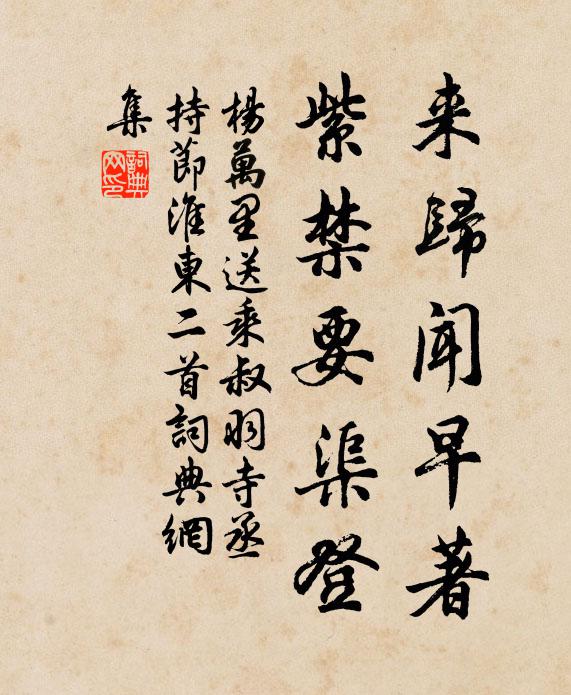 来歸聞早著
紫禁要渠登
楊萬里送乘叔羽寺丞
持節淮東二首詞典網
集
詞典网印